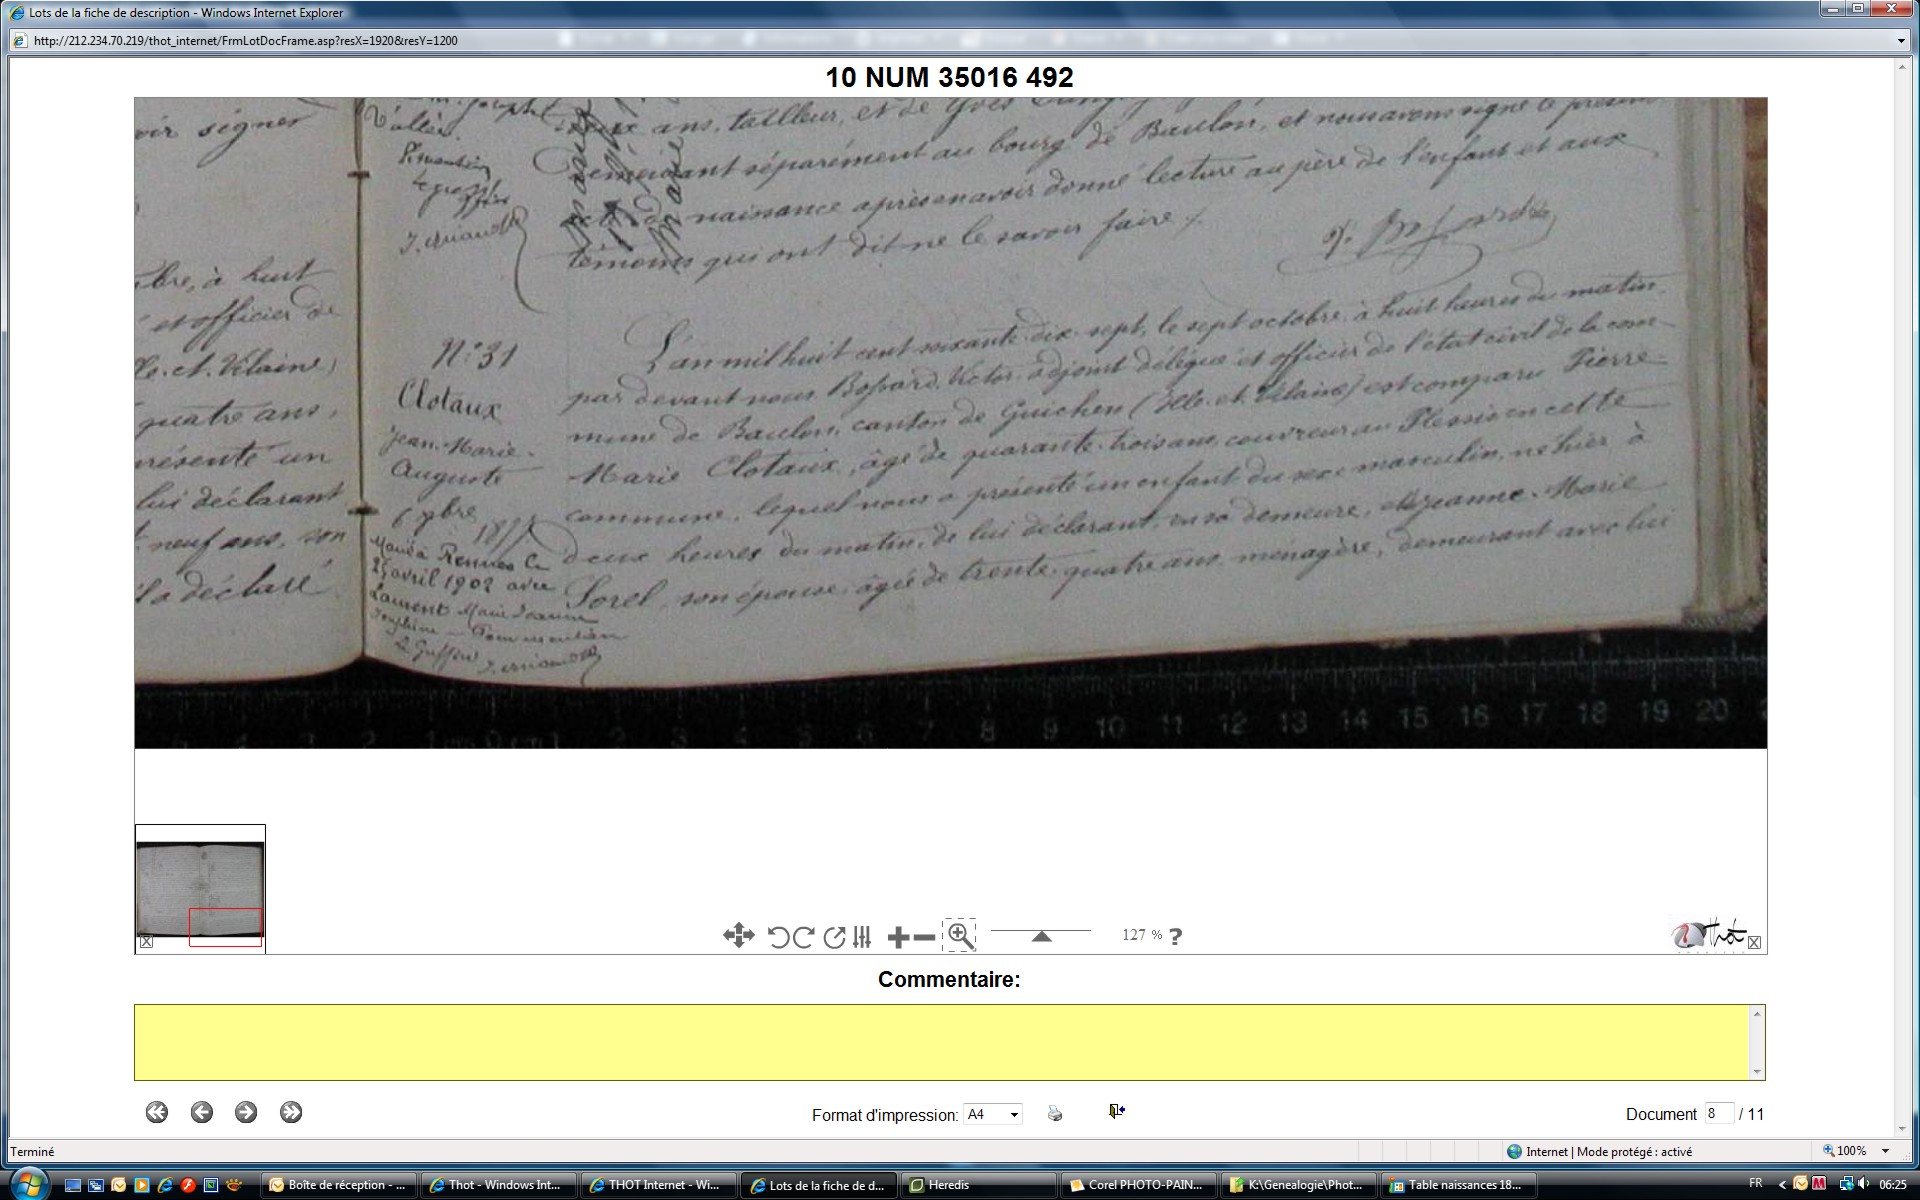 Lots de la fiche de description - Windows Internet Explorer
http://212.234.70.219/thot_internet/FrmLotDocFrame.asp?resX=1920&resY=1200
10 NUM 35016 492
oir signer
bre, à huit
et officier de
le-et-Vilaine)
quatre ans,
présenté un
lui déclarant
neuf ans, son
l'a déclaré
ans, tailleur, et de Yves
Demeurant séparément au bourg de Baulon, et nous avons signé le présent
acte de naissance après en avoir donné lecture au père de l'enfant et aux
témoins qui ont dit ne le savoir faire ./.
N° 31
Clotaux
Jean-Marie-
Auguste
6 8bre
1877
Marié à Rennes le
25 avril 1902 avec
Laurent Marie Jeanne
Joséphine
L'an mil huit cent soixante-dix-sept, le sept octobre, à huit heures du matin
par devant nous Bossard Victor adjoint délégué et officier de l'état civil de la com-
mune de Baulon, canton de Guichen (Ille-et-Vilaine) est comparu Pierre-
Marie Clotaux, âgé de quarante-trois ans, couvreur au Plessis en cette
commune, lequel nous a présenté un enfant du sexe masculin, né hier à
deux heures du matin, de lui déclarant, en sa demeure, et de Jeanne-Marie
Sorel, son épouse, âgée de trente-quatre ans, ménagère, demeurant avec lui
2 1 cm 0 cm 1 2 3 4 5 6 7 8 9 10 11 12 13 14 15 16 17 18 19 20
127 % ?
Thot
Commentaire:
Format d'impression: A4
Document 8 / 11
Terminé
Internet | Mode protégé : activé
100%
Boîte de réception - ...
Thot - Windows Int...
THOT Internet - Wi...
Lots de la fiche de d...
Heredis
Corel PHOTO-PAIN...
K:\Genealogie\Phot...
Table naissances 18...
FR
06:25